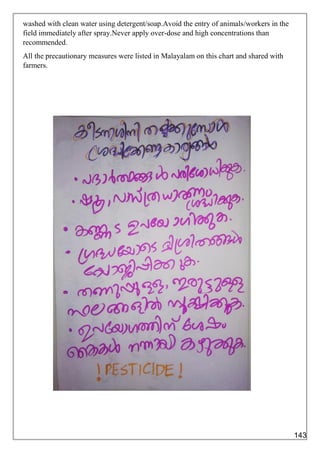 washed with clean water using detergent/soap.Avoid the entry of animals/workers in the
field immediately after spray.Never apply over-dose and high concentrations than
recommended.
All the precautionary measures were listed in Malayalam on this chart and shared with
farmers.
കീടനാശിനി തളിക്കുമ്പോൾ
ശ്രദ്ധിക്കേണ്ട കാര്യങ്ങൾ
• പദാർത്ഥങ്ങൾ പരിശോധിക്കുക.
• ഷൂ,
ശ്രദ്ധിക്കുക.
• കണ്ണട ഉപയോഗിക്കുക.
• ശ്രദ്ധയോടെ മിശ്രിതങ്ങൾ
യോജിപ്പിക്കുക.
• തണുപ്പുള്ള, ഇരുട്ടുള്ള
സ്ഥലങ്ങളിൽ സൂക്ഷിക്കുക.
• ഉപയോഗത്തിന് ശേഷം
കൈകൾ നന്നായി കഴുകുക.
! PESTICIDE !
143